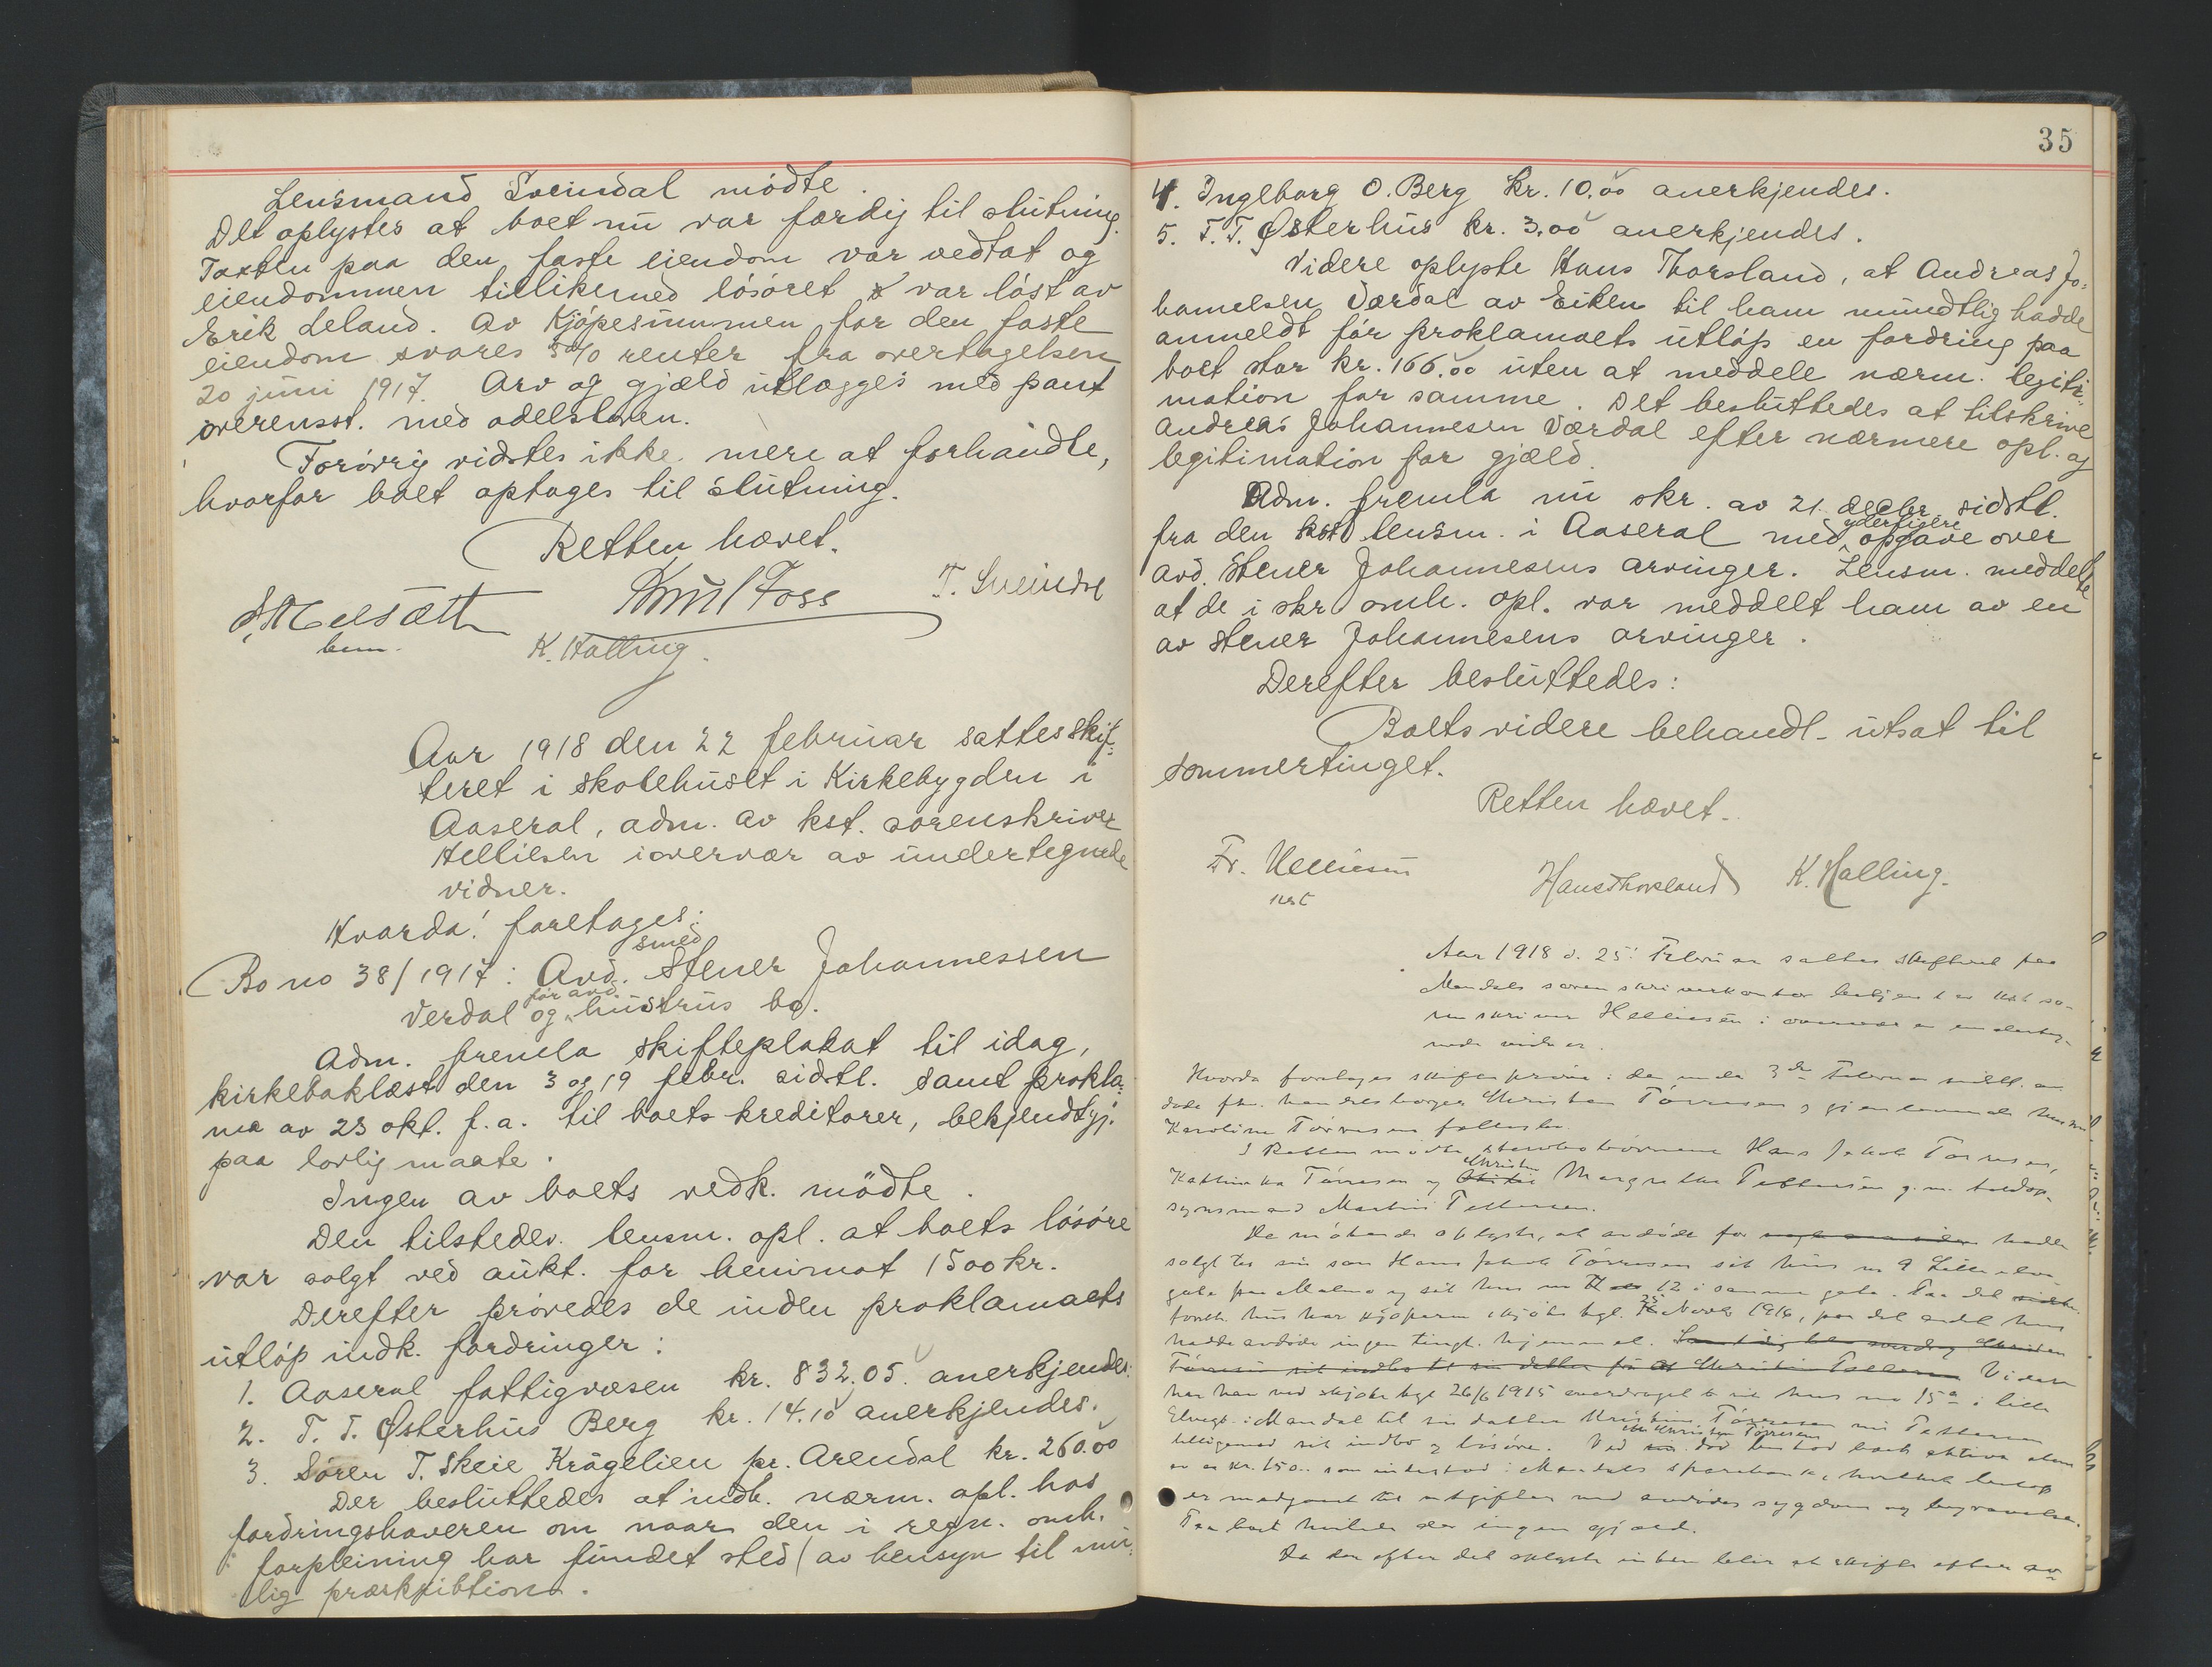 Lensmand Sveindal mödte.
Det oplystes at boet nu var færdig til slutning.
Taxten paa den faste eiendom var vedtat og
eiendommen tillikemed lösöret var löst av
Erik Leland. Av Kjöpesummen for den faste
eiendom svares 5% renter fra overtagelsen
20 juni 1917. Arv og gjæld utlægges med pant
overensst. med odelsloven.
Forövrig vidstes ikke mere at forhandle,
hvorfor boet optages til slutning.
Retten hævet.
Knut Foss T. Sveindal
K. Halling.
Aar 1918 den 22 februar sattes skif-
teret i skolehuset i Kirkebygden i
Aaseral, adm. av kst. sorenskriver
Helliesen i overvær av undertegnede
vidner.
Hvorda! foretages:
Bo no 38/1917: Avd. smed Stener Johannessen
Verdal og før avd. hustrus bo.
Adm. fremla skifteplakat til idag,
kirkebaklæst den 3 og 19 febr. sidstl. samt prokla-
ma av 23 okt. f.a. til boets kreditorer, bekjendtgj.
paa lovlig maate.
Ingen av boets vedk. mödte.
Den tilstedev. lensm. opl. at boets lösöre
var solgt ved aukt. for henimot 1500 kr.
Derefter prövedes de inden proklamaets
utlöp indk. fordringer:
1. Aaseral fattigvæsen kr. 832.05. anerkjendes.
2. T. T. Østerhus Berg kr. 14.10 anerkjendes.
3. Sören T. Skeie Krägelien pr. Arendal kr. 260.00
Der besluttedes at indh. nærm. opl. hos
fordringshaveren om naar den i regn. omh.
forpleining har fundet sted (av hensyn til mu-
lig præskribtion.
35
4. Ingeborg O. Berg kr. 10.00 anerkjendes.
5. T. T. Østerhus kr. 3.00 anerkjendes.
Videre oplyste Hans Thorsland, at Andreas Jo-
hannesen Værdal av Eiken til ham mundtlig hadde
anmeldt för proklamaets utlöp en fordring paa
boet stor kr. 166.00 uten at meddele nærm. legiti-
mation for samme. Det besluttedes at tilskrive
Andreas Johannesen Værdal efter nærmere opl. og
legitimation for gjæld.
Adm. fremla nu skr. av 21. decbr. sidstl.
fra den kst. lensm. i Aaseral med yderligere opgave over
avd. Stener Johannesens arvinger. Lensm. meddelte
at de i skr. omh. opl. var meddelt ham av en
av Stener Johannesens arvinger.
Derefter besluttedes:
Boets videre behandl. utsat til
sommertinget.
Retten hævet.
Fr. Helliesen Hans Thorsland K. Halling.
kst
Aar 1918 d. 25. Februar sattes skifteret paa
Mandals sorenskriverkontor betjent av kst. so-
renskriver Helliesen i overvær av underteg-
nede vidner.
Hvorda foretages skifteprøve: den 3de Februar
døde fhv. handelsborger Christen Tørresen og gjenlevende hustru
Karoline Tørresens fællesbo.
I Retten mødte Hans Jakob Tørresen,
Kathinka Tørresen og Christine Margrethe Pettersen g. m. toldop-
synsmand Martin Pettersen.
De mötende oplyste, at avdöde for nogle aar siden hadde
solgt til sin søn Hans Jakob Tørresen sit hus no 9 Lille elve-
gate paa Malmø og sit hus no 12 i samme gate. Paa det
hus har kjøperen skjøte tgl. 25 Novbr 1916, paa det andet hus
hadde avdøde ingen tingl. hjemmel. Videre
har han ved skjøte tgl. 26/6 1915 overdraget sit hus no 15a i lille
Elvegt. i Mandal til sin datter Kristine Tørresen nu Pettersen
tilligemed sit indbo og løsøre. Ved Christen Tørresens død bestod boets aktiva alene
av kr. 150.- som indestod i Mandals sparebank, hvilket beløp
er medgaaet til utgifter ved avdødes sygdom og begravelse.
Paa boet hviler der ingen gjæld.
Da der efter det oplyste intet blir at skifte efter av-